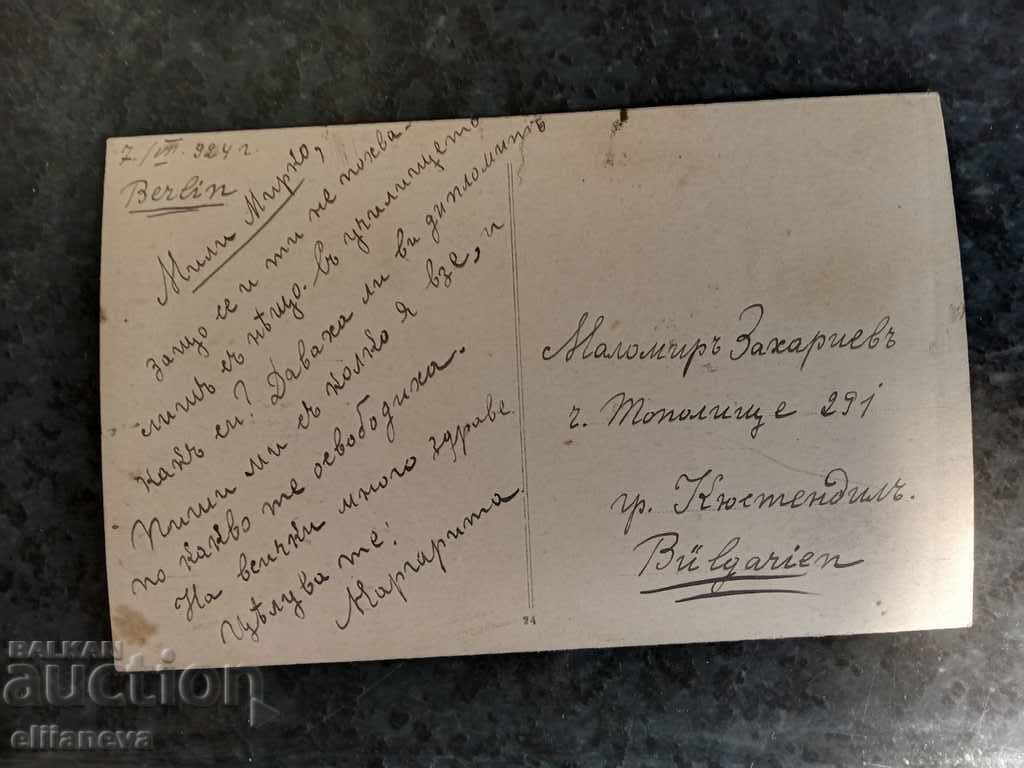 7./VII. 924 г.
Berlin
Мили Мирко,
защо се и ти не похва-
лишъ съ нѣщо. въ училището
какъ си? Даваха ли ви дипломитѣ
Пиши ми съ колко я взе, и
по какво те освободиха.
На всички много здраве.
Цѣлува те!
Маргарита.
Маломиръ Захариевъ
ч. Тополище 291
гр. Кюстендилъ.
Bülgarien
24
BALKAN
auction
ellianeva